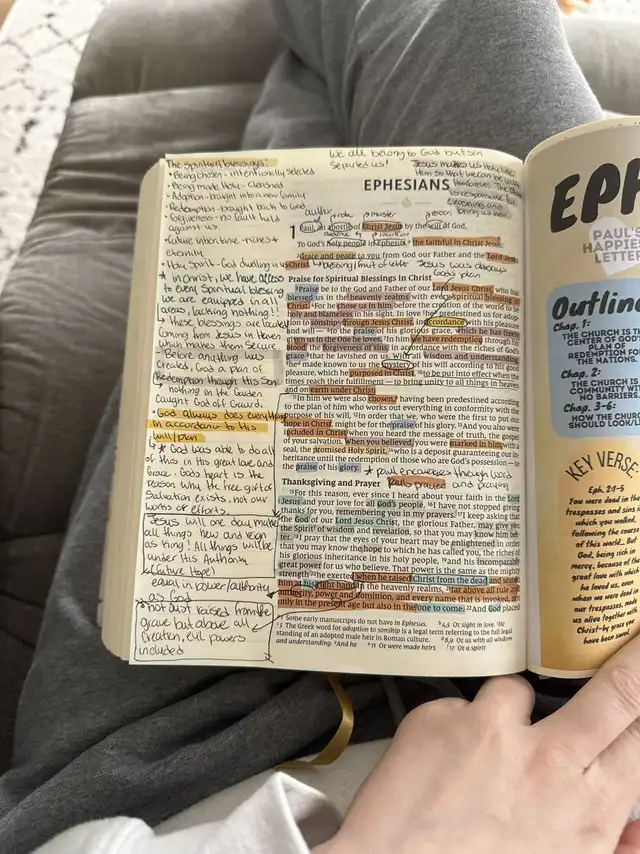 We all belong to God but sin
separated us!
The spiritual blessings:
• Being chosen - intentionally selected
• Being made Holy - cleansed
• Adoption - bought into a new family
• Redemption - bought back to God
• Forgiveness - no fault held
against us.
eternity
• Holy Spirit - God dwelling in us
* in Christ, we have access
to every spiritual blessing
we are equipped in all
areas, lacking nothing!!
these blessings are located
coming from Jesus in Heaven
which makes them secure
Before anything was
created, God a plan of
Redemption through His Son
nothing in the Garden
caught God off Guard.
• God always does everything
in accordance to His
will/plan
↳ * God was able to do all
of this in His great love and
Grace. God's heart is the
reason why the free gift of
Salvation exists, not our
works or efforts.
Jesus will one day make
all things new and reign
as King! All things will be
under His Authority
(Future Hope)
equal in power/authority
as God
* not just raised from the
grave but above all
creation, evil powers
included
EPHESIANS
1 Paul, an apostle of Christ Jesus by the will of God,
To God's holy people in Ephesus, the faithful in Christ Jesus:
2 Grace and peace to you from God our Father and the Lord Jesus
Christ. ↳ blessing/fruit of letter
Jesus was always
God's plan
Praise for Spiritual Blessings in Christ
3 Praise be to the God and Father of our Lord Jesus Christ, who has
blessed us in the heavenly realms with every spiritual blessing in
Christ. 4 For he chose us in him before the creation of the world to be
holy and blameless in his sight. In love 5 he predestined us for adop-
tion to sonship through Jesus Christ, in accordance with his pleasure
and will— 6 to the praise of his glorious grace, which he has freely
given us in the One he loves. 7 In him we have redemption through his
blood, the forgiveness of sins, in accordance with the riches of God's
grace 8 that he lavished on us. With all wisdom and understanding,
9 he made known to us the mystery of his will according to his good
pleasure, which he purposed in Christ, 10 to be put into effect when the
times reach their fulfillment—to bring unity to all things in heaven
and on earth under Christ.
11 In him we were also chosen, having been predestined according
to the plan of him who works out everything in conformity with the
purpose of his will, 12 in order that we, who were the first to put our
hope in Christ, might be for the praise of his glory. 13 And you also were
included in Christ when you heard the message of truth, the gospel
of your salvation. When you believed, you were marked in him with a
seal, the promised Holy Spirit, 14 who is a deposit guaranteeing our in-
heritance until the redemption of those who are God's possession—to
the praise of his glory.
* Paul encourages through word
Thanksgiving and Prayer
Paul's prayer and praying
15 For this reason, ever since I heard about your faith in the Lord
Jesus and your love for all God's people, 16 I have not stopped giving
thanks for you, remembering you in my prayers. 17 I keep asking that
the God of our Lord Jesus Christ, the glorious Father, may give you
the Spirit of wisdom and revelation, so that you may know him better.
18 I pray that the eyes of your heart may be enlightened in order
that you may know the hope to which he has called you, the riches of
his glorious inheritance in his holy people, 19 and his incomparably
great power for us who believe. That power is the same as the mighty
strength 20 he exerted when he raised Christ from the dead and seated
him at his right hand in the heavenly realms, 21 far above all rule and
authority, power and dominion, and every name that is invoked, not
only in the present age but also in the one to come. 22 And God placed
1 Some early manuscripts do not have in Ephesus. 4,5 Or sight in love. 5 He
5 The Greek word for adoption to sonship is a legal term referring to the full legal
standing of an adopted male heir in Roman culture. 8,9 Or us with all wisdom
and understanding. 9 And he 11 Or were made heirs 17 Or a spirit
EPH
PAUL'S
HAPPIES
LETTER
Outline
Chap. 1:
THE CHURCH IS T
CENTER OF GOD'S
PLAN OF
REDEMPTION FOR
THE NATIONS.
Chap. 2:
THE CHURCH IS
COMMUNITY WIT
NO
Chap. 3-6:
HOW THE CHURC
SHOULD LOOK/LI
KEY VERSE:
Eph. 2:1-5
You were dead in the
trespasses and sins in
which you walked,
following the course
of this world... But
God, being rich in
mercy, because of the
great love with which
he loved us, even
when we were dead in
our trespasses, made
us alive together with
Christ-by grace you
have been saved.